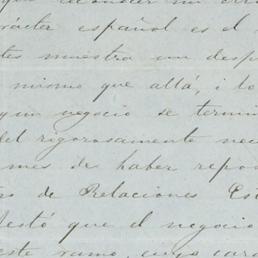 reconocer un
carácter español es el
tes muestra un desp
mismo que allá, i lo
gun negocio se termin
del rigorosamente nec
mes de haber repo
es de Relaciones Est
festó que el negocio
este ramo, cuyo cará